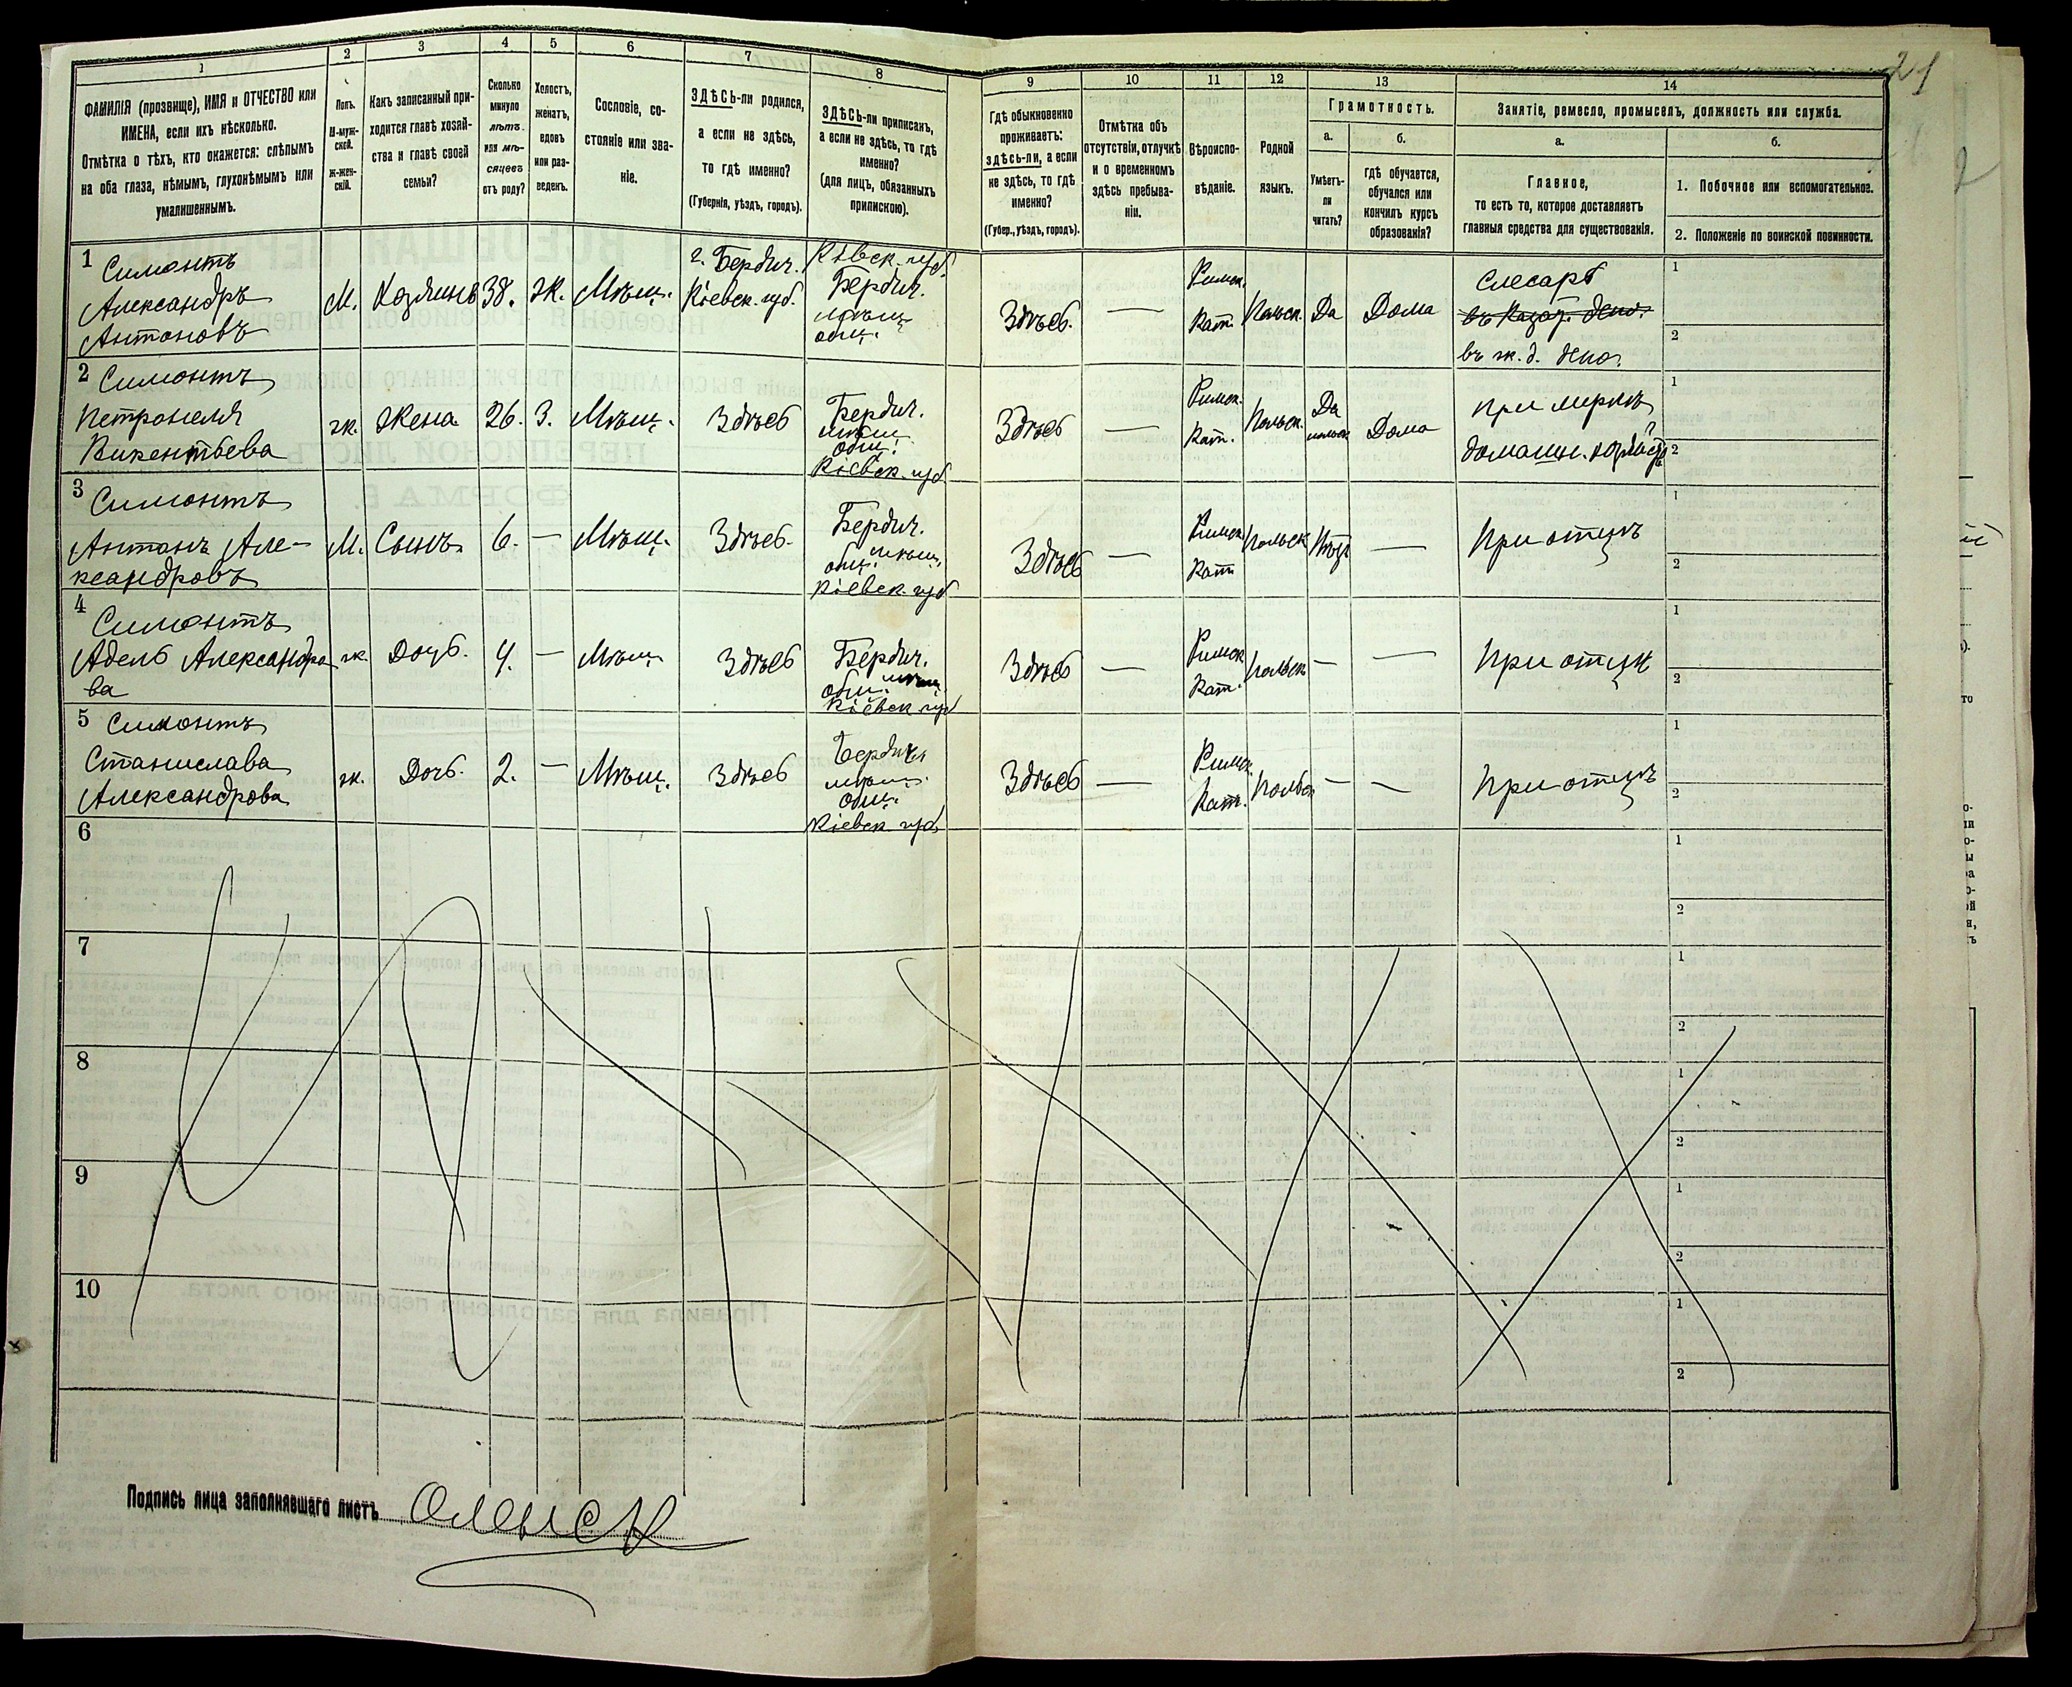 21
1
2
3
4
5
6
7
8
9
10
11
12
13
14
ФАМИЛІЯ (прозвище), ИМЯ и ОТЧЕСТВО или
ИМЕНА, если ихъ нѣсколько.
Отмѣтка о тѣхъ, кто окажется: слѣпымъ
на оба глаза, нѣмымъ, глухонѣмымъ или
умалишеннымъ.
Полъ.
М-муж-
ской.
Ж-жен-
скій.
Какъ записанный при-
ходится главѣ хозяй-
ства и главѣ своей
семьи?
Сколько
минуло
лѣтъ
или мѣ-
сяцевъ
отъ роду?
Холостъ,
женатъ,
вдовъ
или раз-
веденъ.
Сословіе, со-
стояніе или зва-
ніе.
ЗДѢСЬ-ли родился,
а если не здѣсь,
то гдѣ именно?
(Губернія, уѣздъ, городъ).
ЗДѢСЬ-ли приписанъ,
а если не здѣсь, то гдѣ
именно?
(для лицъ, обязанныхъ
припискою).
Гдѣ обыкновенно
проживаетъ:
здѣсь-ли, а если
не здѣсь, то гдѣ
именно?
(Губер., уѣздъ, городъ).
Отмѣтка объ
отсутствіи, отлучкѣ
и о временномъ
здѣсь пребыва-
ніи.
Вѣроиспо-
вѣданіе.
Родной
языкъ.
Грамотность.
а.
б.
Умѣетъ-
ли
читать?
Гдѣ обучается,
обучался или
кончилъ курсъ
образованія?
Занятіе, ремесло, промыселъ, должность или служба.
а.
б.
Главное,
то есть то, которое доставляетъ
главныя средства для существованія.
1. Побочное или вспомогательное.
2. Положеніе по воинской повинности.
1 Симонтъ
Александръ
Антоновъ
М.
Хозяинъ
38.
ж.
Мѣщ.
г. Бердич.
Кіевск. губ.
Кіевск. губ.
Бердич.
мѣщ.
общ.
Здѣсь.
—
Римск.
Кат.
Польск.
Да
Дома
Слесарь
въ ж. д. депо.
1
2
2 Симонтъ
Петронеля
Викентьева
ж.
Жена
26.
З.
Мѣщ.
Здѣсь
Бердич.
мѣщ.
общ.
Кіевск. губ
Здѣсь
—
Римск.
Кат.
Польск.
Да
польск
Дома
при мужѣ
домашн. хозяйст
1
2
3 Симонтъ
Антонъ Але-
ксандровъ
М.
Сынъ
6.
—
Мѣщ.
Здѣсь.
Бердич.
общ. мѣщ.
Кіевск. губ
Здѣсь
—
Римск
Кат
Польск
Нѣтъ
—
При отцѣ
1
2
4 Симонтъ
Адель Александро
ва
ж.
Дочь.
4.
—
Мѣщ
Здѣсь
Бердич.
общ. мѣщ.
Кіевск губ
Здѣсь
—
Римск
Кат.
Польск
—
—
При отцѣ
1
2
5 Симонтъ
Станислава
Александрова
ж.
Дочь.
2.
—
Мѣщ.
Здѣсь
Бердич
мѣщ.
общ.
Кіевск губ
Здѣсь
—
Римск.
Кат.
Польск
—
—
При отцѣ
1
2
6
1
2
7
1
2
8
1
2
9
1
2
10
1
2
Подпись лица заполнявшаго листъ